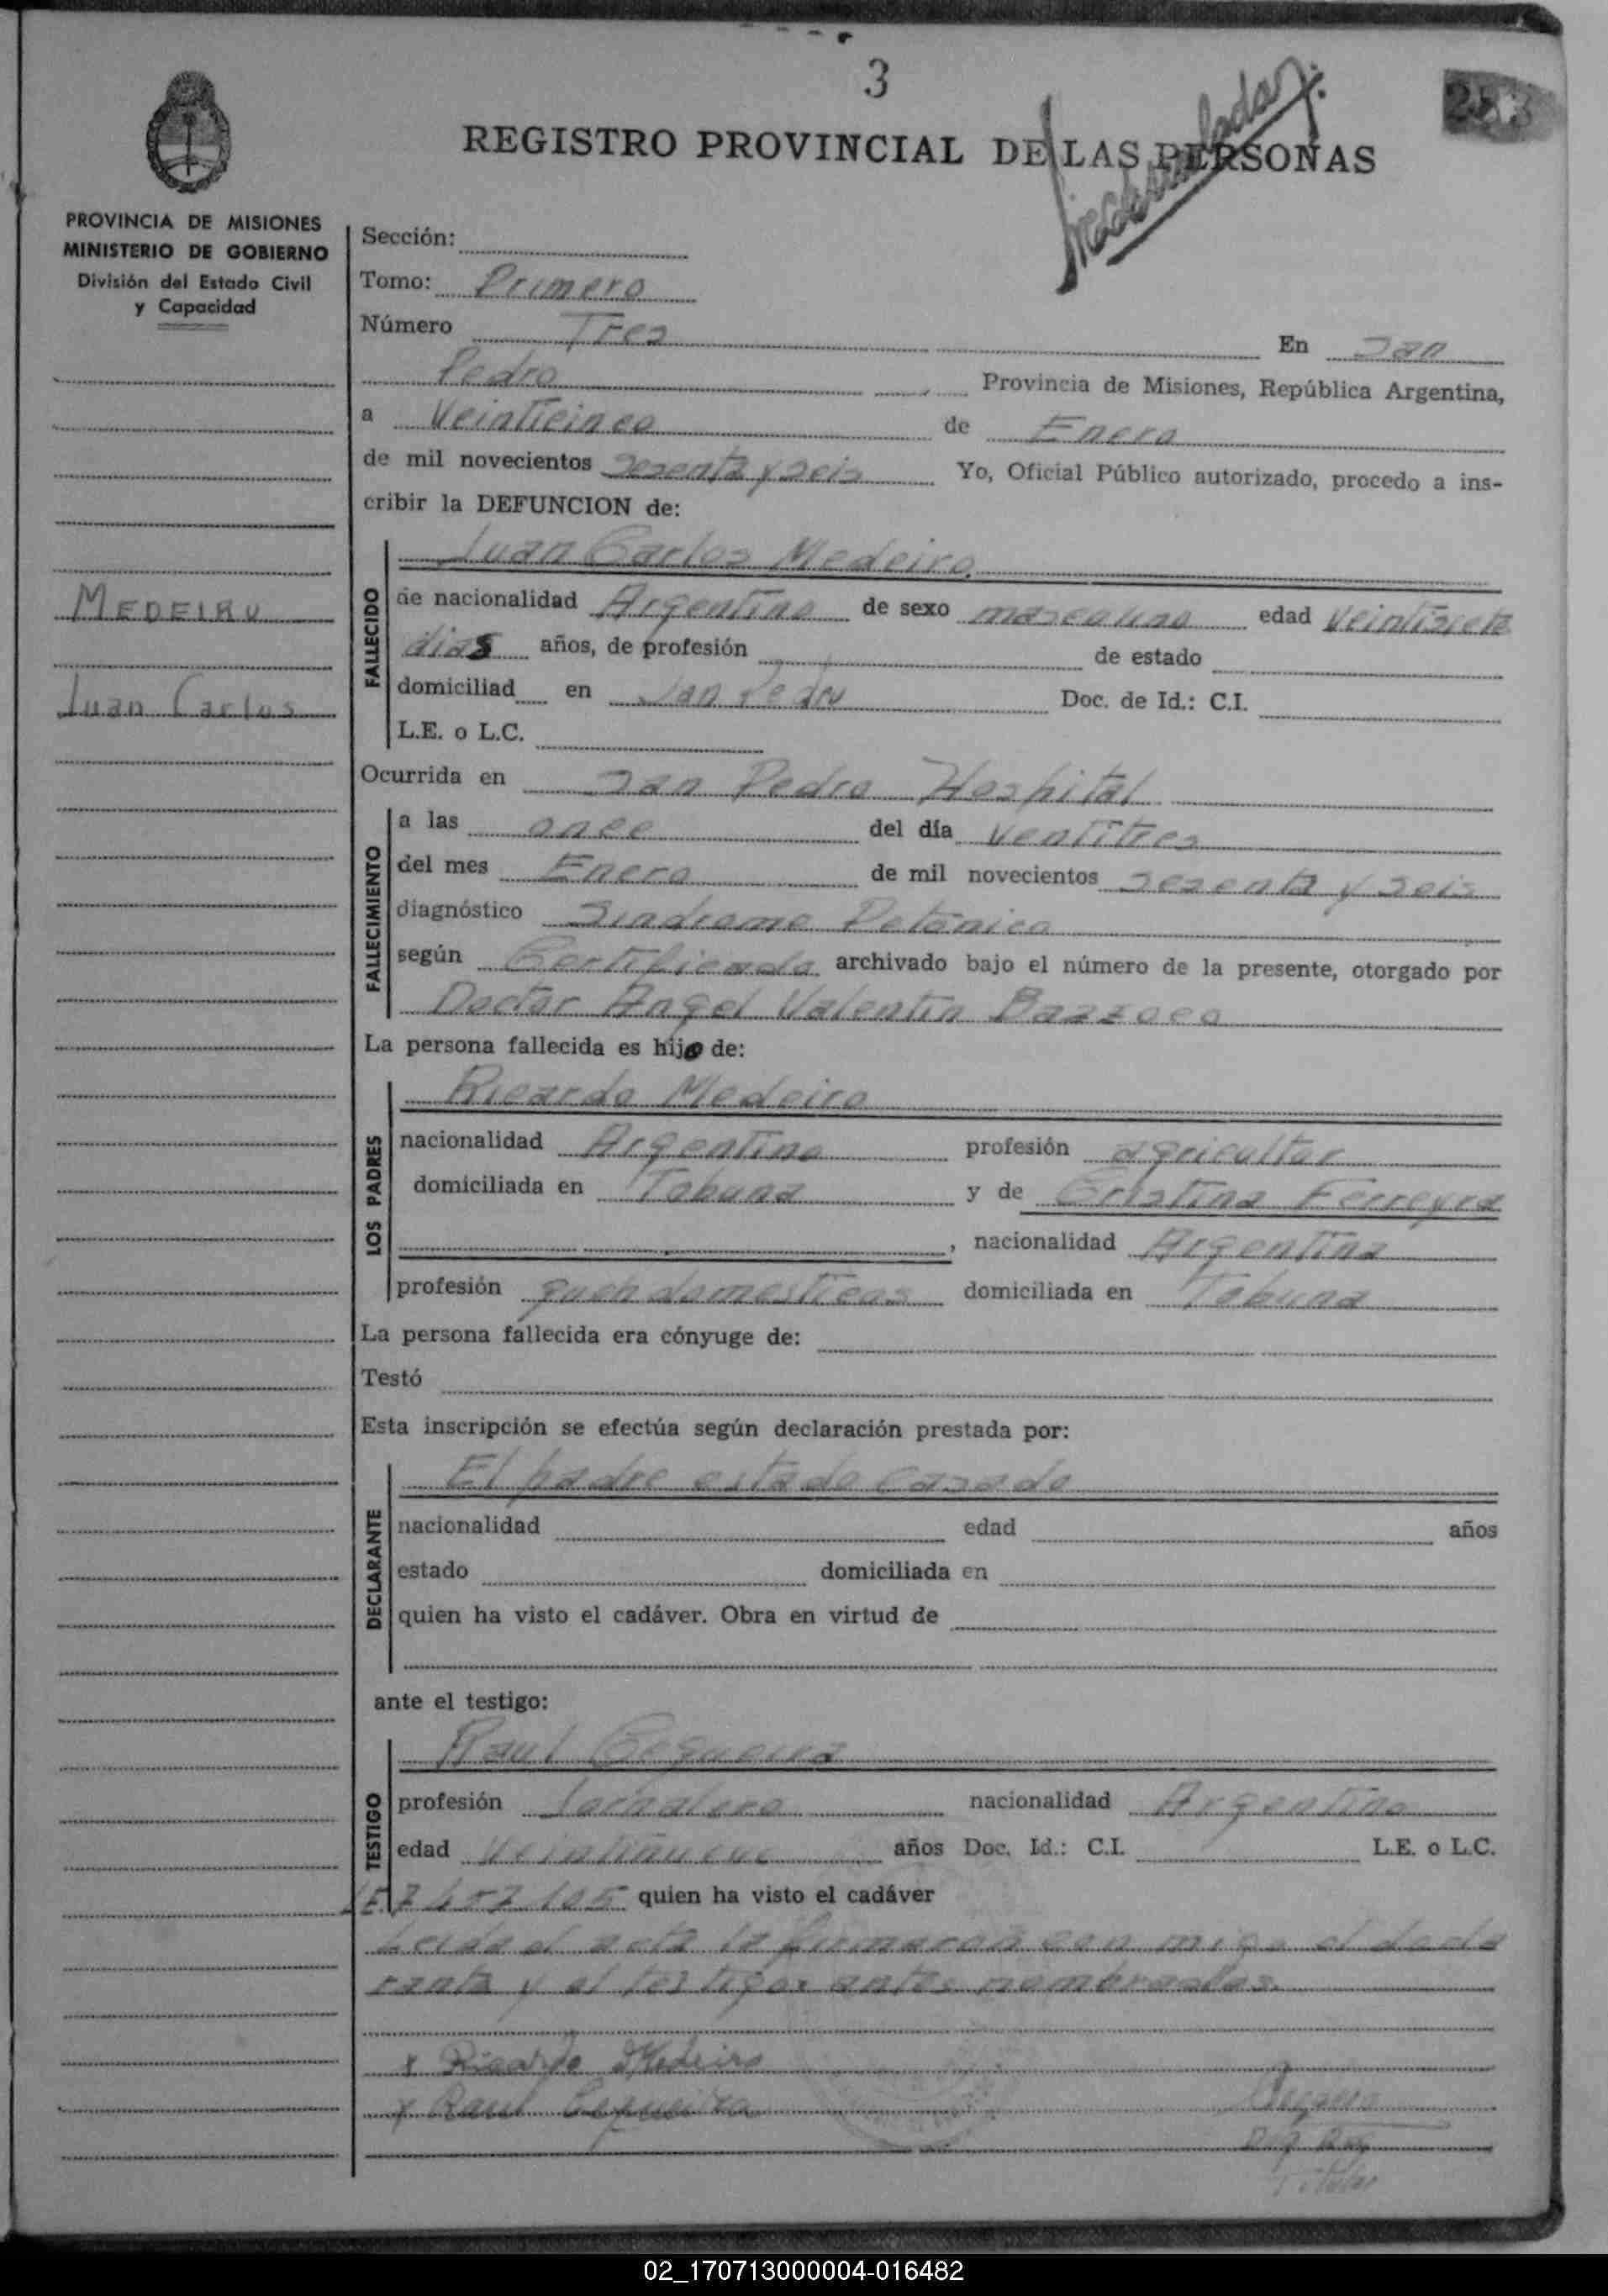 3
253
REGISTRO PROVINCIAL DE LAS PERSONAS
PROVINCIA DE MISIONES
MINISTERIO DE GOBIERNO
División del Estado Civil
y Capacidad
MEDEIRO
Juan Carlos
Sección:
Tomo: Primero
Número Tres En San
Pedro Provincia de Misiones, República Argentina,
a Veinticinco de Enero
de mil novecientos sesenta y seis Yo, Oficial Público autorizado, procedo a ins-
cribir la DEFUNCION de:
FALLECIDO
Juan Carlos Medeiro
de nacionalidad Argentino de sexo masculino edad Veintisiete
dias años, de profesión de estado
domiciliad en San Pedro Doc. de Id.: C.I.
L.E. o L.C.
Ocurrida en San Pedro Hospital
FALLECIMIENTO
a las once del día ventitres
del mes Enero de mil novecientos sesenta y seis
diagnóstico Sindrome
según Certificado archivado bajo el número de la presente, otorgado por
Doctor Angel Valentin
La persona fallecida es hijo de:
LOS PADRES
Ricardo Medeiro
nacionalidad Argentino profesión agricultor
domiciliada en Tobuna y de Cristina Ferreyra
, nacionalidad Argentina
profesión domesticos domiciliada en Tobuna
La persona fallecida era cónyuge de:
Testó
Esta inscripción se efectúa según declaración prestada por:
DECLARANTE
El padre estado casado
nacionalidad edad años
estado domiciliada en
quien ha visto el cadáver. Obra en virtud de
ante el testigo:
TESTIGO
Raul Cequeira
profesión Jornalero nacionalidad Argentino
edad Veintinueve años Doc. Id.: C.I. L.E. o L.C.
LE. 7457105 quien ha visto el cadáver
Leida el acta la firmaron con migo el decla
rante y el testigos antes nombrados.
x Ricardo Medeiro
x Raul Cequeira
Titular
02_170713000004-016482